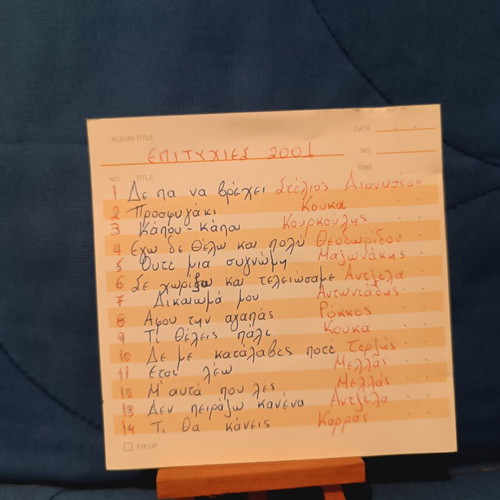 ALBUM TITLE DATE
ΕΠΙΤΥΧΙΕΣ 2001 NO.
NO TITLE TIME
1 Δε πα να βρέχει Στέλιος Διονυσίου
2 Προσφυγάκι Κούκα
3 Κάπου-Κάπου Κουρκούλης
4 Εχω δε θέλω και πολύ Θεοδωρίδου
5 Ουτέ μια συγνώμη Μαζωνάκης
6 Σε χωρίζω και τελειώσαμε Αντζελα
7 Δικαίωμά μου Αντωνιάδης
8 Αφου την αγαπάς Ρόκκος
9 Τι θέλεις πάλι Κούκα
10 Δε με κατάλαβες ποτέ Τερζής
11 Ετσι λέω Μελλάς
12 Μ' αυτά που λες Μελλάς
13 Δεν πειράζω κανένα Αντζελα
14 Τι θα κάνεις Καρράς
FIX UP